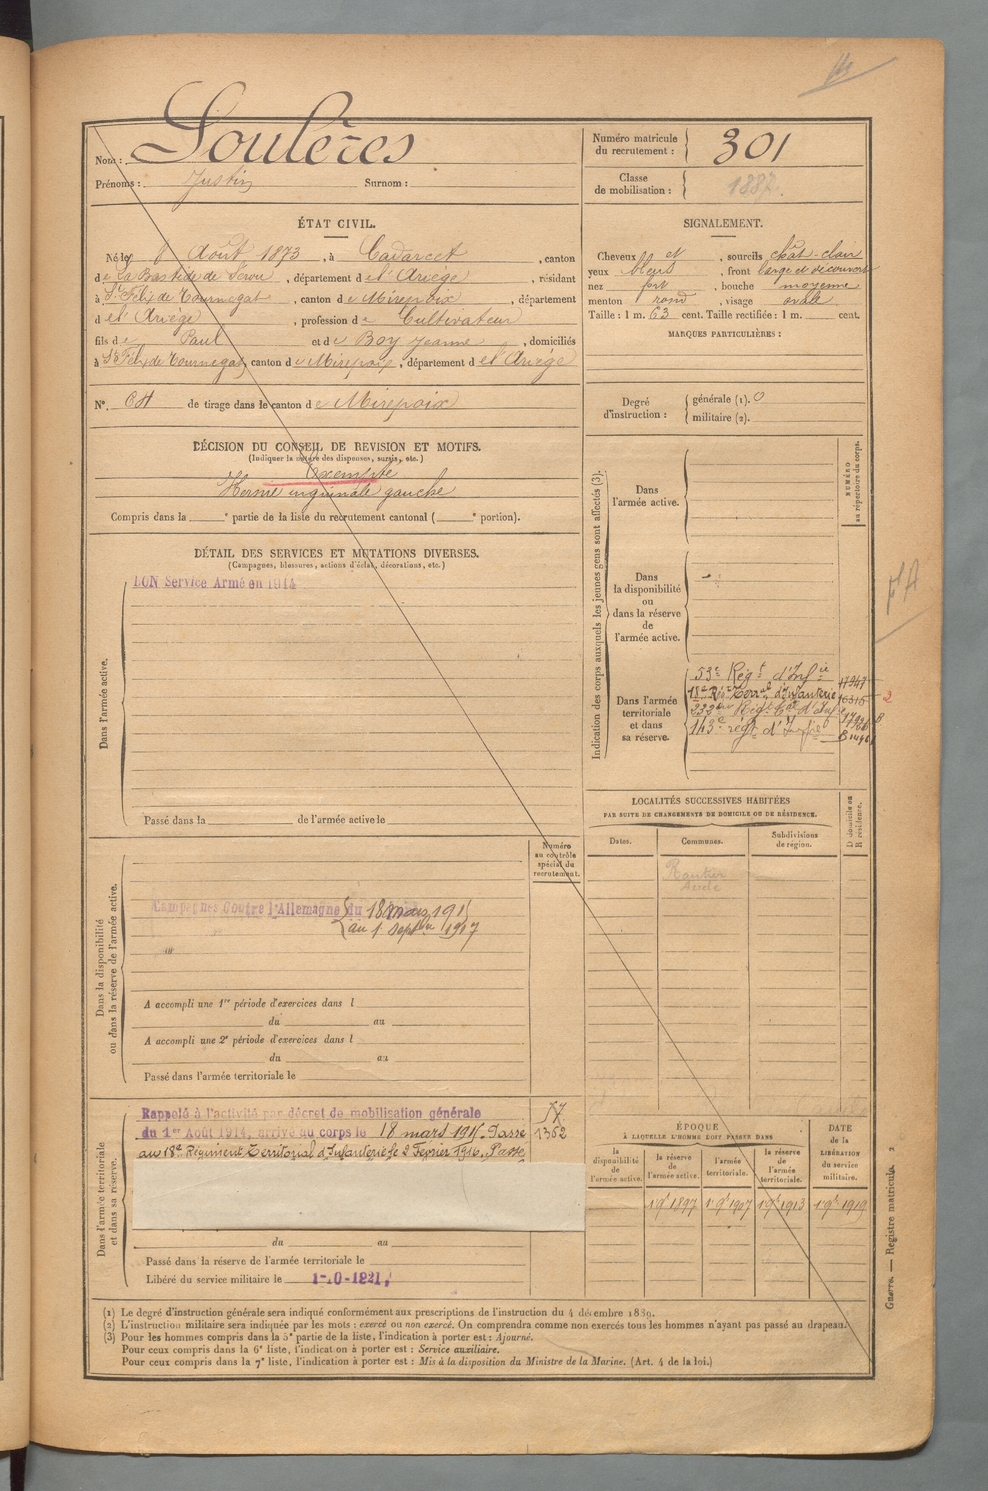 Nom : Soulères
Prénoms : Justin Surnom :
Numéro matricule du recrutement : 301
Classe de mobilisation : 1887.
ÉTAT CIVIL.
Né le 8 Août 1873, à Cadarcet, canton
de La Bastide de Sérou, département de l'Ariège, résidant
à St Félix de Tournegat, canton de Mirepoix, département
de l'Ariège, profession de Cultivateur
fils de Paul et de Boy Jeanne, domiciliés
à St Félix de Tournegat, canton de Mirepoix, département de l'Ariège
N°. 64 de tirage dans le canton de Mirepoix
SIGNALEMENT.
Cheveux et, sourcils chât-clair
yeux bleus, front large et découvert
nez fort, bouche moyenne
menton rond, visage ovale
Taille : 1 m. 63 cent. Taille rectifiée : 1 m. cent.
MARQUES PARTICULIÈRES :
Degré d'instruction : générale (1). 0
militaire (2).
DÉCISION DU CONSEIL DE REVISION ET MOTIFS.
(Indiquer la nature des dispenses, sursis, etc.)
Exempté
Hernie inguinale gauche
Compris dans la e partie de la liste du recrutement cantonal ( e portion).
DÉTAIL DES SERVICES ET MUTATIONS DIVERSES.
(Campagnes, blessures, actions d'éclat, décorations, etc.)
BON Service Armé en 1914
Dans l'armée active.
Passé dans la de l'armée active le
Indication des corps auxquels les jeunes gens sont affectés (3).
NUMÉRO au répertoire du corps.
Dans l'armée active.
Dans la disponibilité ou dans la réserve de l'armée active.
Dans l'armée territoriale et dans sa réserve.
59e Régt d'Infie
18e Régt Terral d'Infanterie
143e régt d'Infie
2
LOCALITÉS SUCCESSIVES HABITÉES
PAR SUITE DE CHANGEMENTS DE DOMICILE OU DE RÉSIDENCE.
Dates. Communes. Subdivisions de région.
D domicile ou R résidence.
Numéro au contrôle spécial du recrutement.
Dans la disponibilité ou dans la réserve de l'armée active.
Campagnes Contre l'Allemagne du 18 mars 1915
au 1 Septbre 1917
A accompli une 1re période d'exercices dans l
du au
A accompli une 2e période d'exercices dans l
du au
Passé dans l'armée territoriale le
Dans l'armée territoriale et dans sa réserve.
Rappelé à l'activité par décret de mobilisation générale
du 1er Août 1914, arrivé au corps le 18 mars 1915. Passé
au 18e Régiment Territorial d'Infanterie le 2 Février 1916. Passé
1362
du au
Passé dans la réserve de l'armée territoriale le
Libéré du service militaire le 1-10-1921.
ÉPOQUE
À LAQUELLE L'HOMME DOIT PASSER DANS
la disponibilité de l'armée active.
la réserve de l'armée active.
l'armée territoriale.
la réserve de l'armée territoriale.
DATE de la LIBÉRATION du service militaire.
1 9bre 1897 1 9bre 1907 1 9bre 1913 1 9bre 1919
(1) Le degré d'instruction générale sera indiqué conformément aux prescriptions de l'instruction du 4 décembre 1889.
(2) L'instruction militaire sera indiquée par les mots : exercé ou non exercé. On comprendra comme non exercés tous les hommes n'ayant pas passé au drapeau.
(3) Pour les hommes compris dans la 5e partie de la liste, l'indication à porter est : Ajourné.
Pour ceux compris dans la 6e liste, l'indication à porter est : Service auxiliaire.
Pour ceux compris dans la 7e liste, l'indication à porter est : Mis à la disposition du Ministre de la Marine. (Art. 4 de la loi.)
Guerre. — Registre matricule. 2